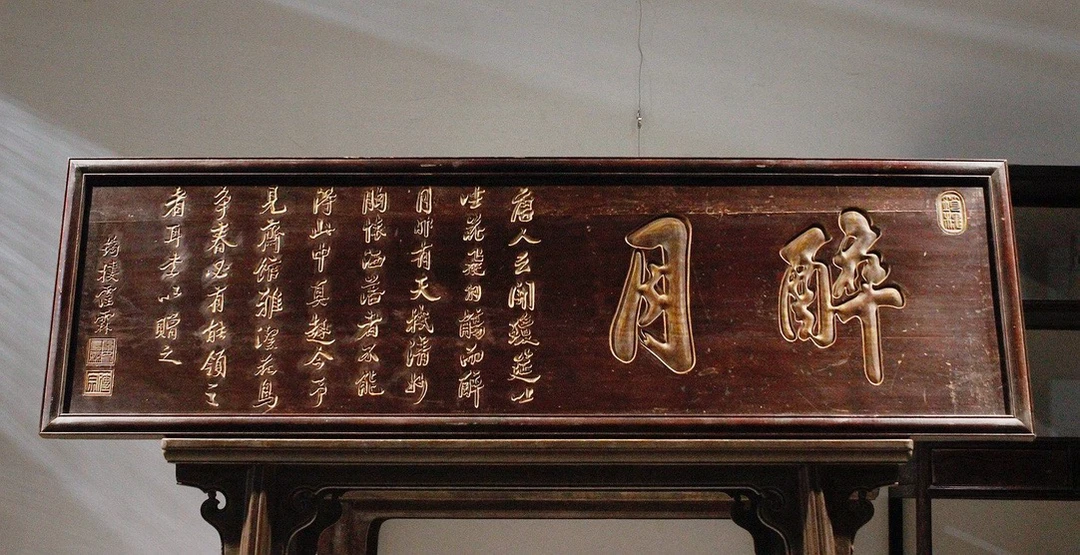 醉月
唐人云開瓊筵以
坐花飛羽觴而醉
月非有天機清妙
胸懐洒落者不能
得此中真趣今予
見齋館雅潔花鳥
争春必有能領之
者耳書以贈之
霖